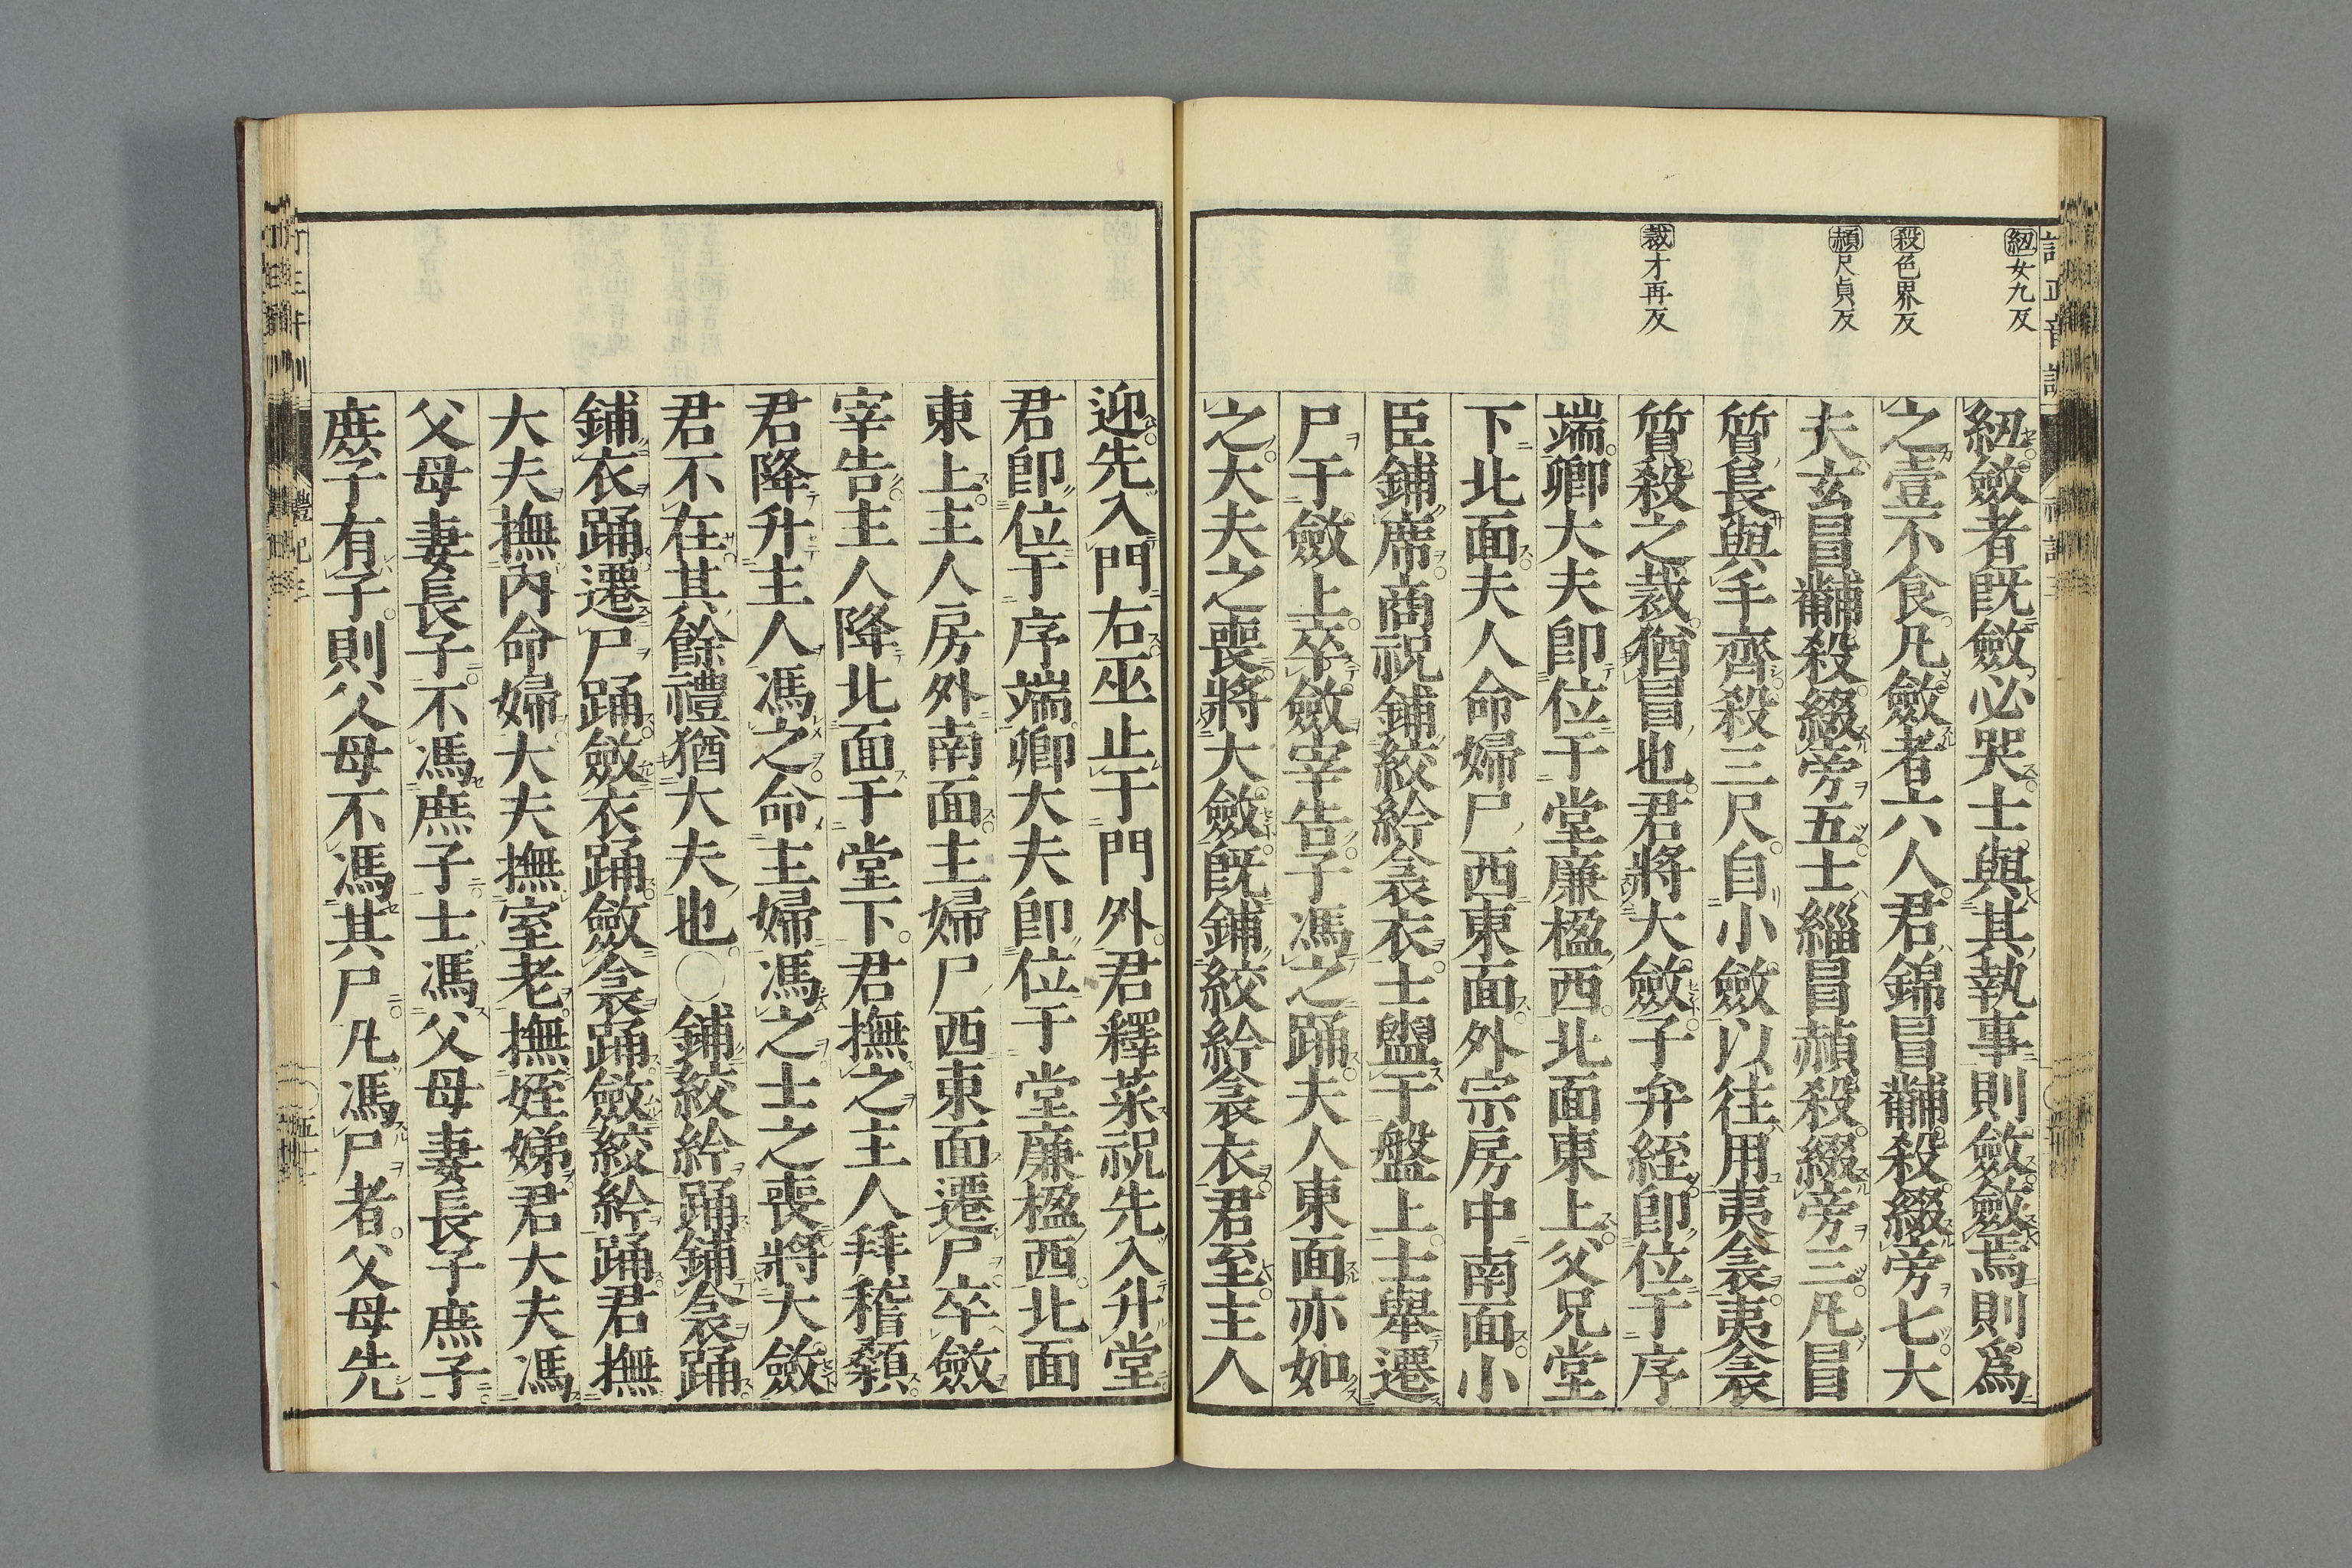 紐女九反
殺色界反
赬尺貞反
裁才再反
紐斂者既斂必哭士與其執事則斂斂焉則爲
之壹不食凡斂者六人君錦冒黼殺綴旁七大
夫玄冒黼殺綴旁五士緇冒赬殺綴旁三凡冒
質長與手齊殺三尺自小斂以往用夷衾夷衾
質殺之裁猶冒也君將大斂子弁絰卽位于序
端卿大夫卽位于堂廉楹西北面東上父兄堂
下北面夫人命婦尸西東面外宗房中南面小
臣鋪席商祝鋪絞紟衾衣士盥于盤上士舉遷
尸于斂上卒斂宰告子馮之踊夫人東面亦如
之大夫之喪將大斂既鋪絞紟衾衣君至主人
迎先入門右巫止于門外君釋菜祝先入升堂
君卽位于序端卿大夫卽位于堂廉楹西北面
東上主人房外南面主婦尸西東面遷尸卒斂
宰告主人降北面于堂下君撫之主人拜稽顙
君降升主人馮之命主婦馮之士之喪將大斂
君不在其餘禮猶大夫也○鋪絞紟踊鋪衾踊
鋪衣踊遷尸踊斂衣踊斂衾踊斂絞紟踊君撫
大夫撫內命婦大夫撫室老撫姪娣君大夫馮
父母妻長子不馮庶子士馮父母妻長子庶子
庶子有子則父母不馮其尸凡馮尸者父母先